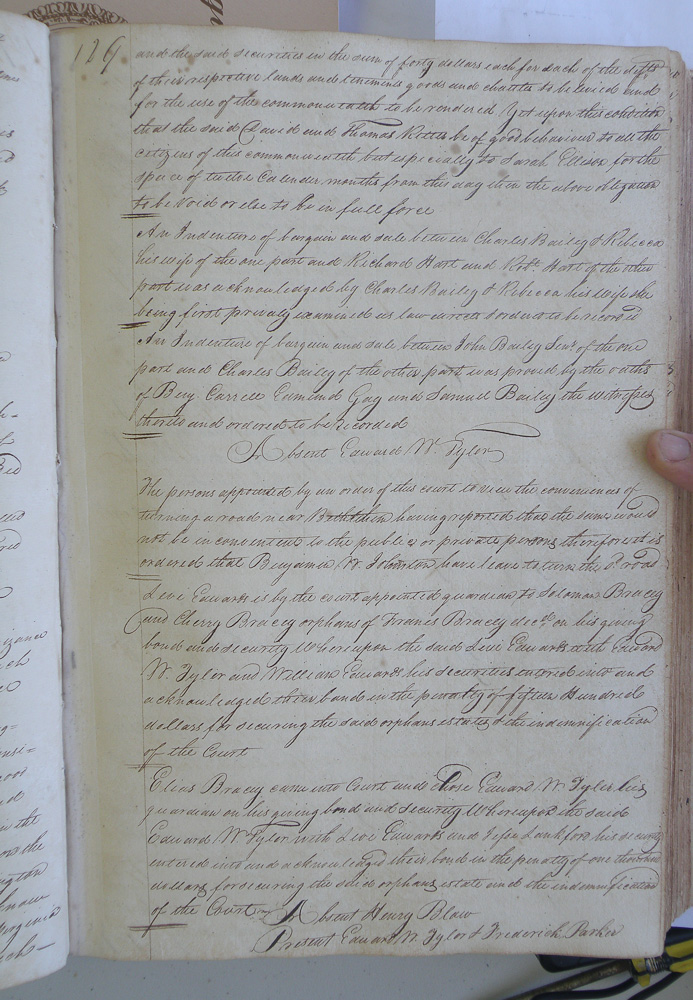 129
and the said securities in the sum of forty dollars each for each of the defts
of their respective lands and tenements goods and chattels to be levied and
for the use of the commonwealth to be rendered Yet upon this condition
that the said David and Thomas be of good behaviour to all the
citizens of this commonwealth but especially to Sarah Ellison for the
space of twelve Calender months from this day then the above obligation
to be void or else to be in full force
An Indenture of bargain and sale between Charles Bailey & Rebecca
his wife of the one part and Richard Hart and Robt. Hart of the other
part was acknowledged by Charles Bailey & Rebecca his wife she
being first privily examined as law directs & ordered to be recorded
An Indenture of bargain and sale between John Bailey Senr. of the one
part and Charles Bailey of the other part was proved by the oaths
of Benj. Carrell Edmund Gay and Samuel Bailey the witnesses
thereto and ordered to be Recorded
Absent Edward W. Tyler
The persons appointed by an order of this court to view the conveniences of
turning a road near having reported that the same would
not be inconvenient to the public or private persons therefore it is
ordered that Benjamin W. Johnston have leave to turn the sd. road
Levi Edwards is by the court appointed guardian to Solomon Bracey
and Cherry Bracey orphans of Francis Bracey decd. on his giving
bond and security Whereupon the said Levi Edwards with Edward
W. Tyler and William Edwards his securities entered into and
acknowledged their bond in the penalty of fifteen Hundred
dollars for securing the said orphans estates & the indemnification
of the Court
Elias Bracey came into Court and chose Edward W. Tyler his
guardian on his giving bond and security Whereupon the said
Edward W Tyler with Levi Edwards and Jesse Lankford his security
entered into and acknowledged their bond in the penalty of one thousand
dollars for securing the said orphans estate and the indemnification
of the Court
Absent Henry Blow
Present Edward W. Tyler & Frederick Parker